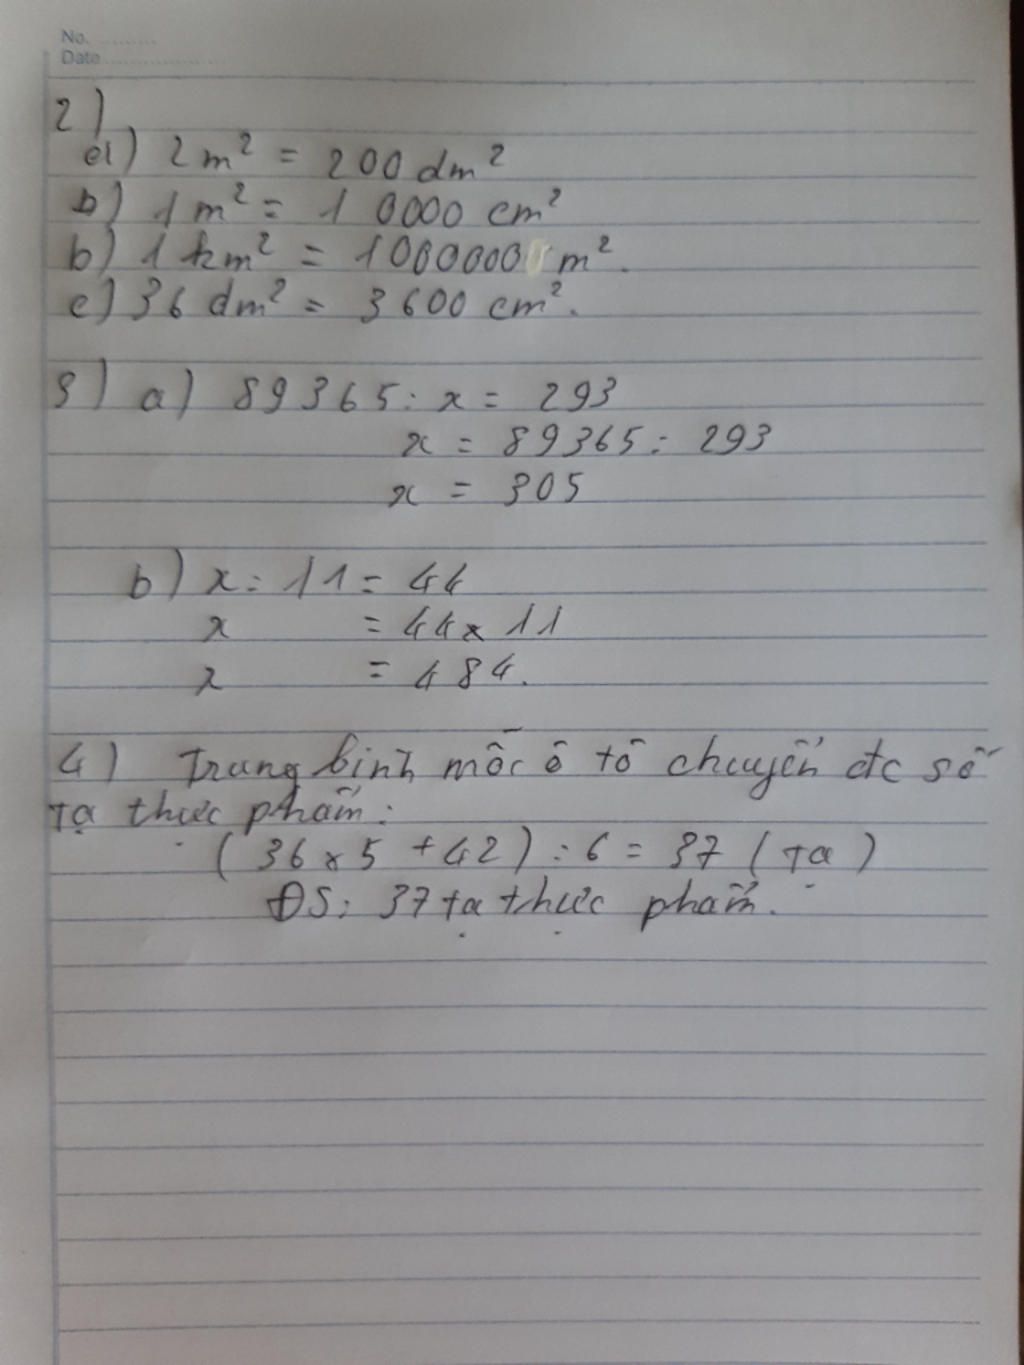 No. .........
Date ..................
2)
a) 2m² = 200 dm²
b) 1m² = 10000 cm²
b) 1km² = 1000000 m².
c) 36 dm² = 3600 cm².
3) a) 89365 : x = 293
x = 89365 : 293
x = 305
b) x : 11 = 44
x = 44 x 11
x = 484.
4) Trung bình mỗi ô tô chuyển đc số
tạ thực phẩm:
(36 x 5 + 42) : 6 = 37 (tạ)
ĐS: 37 tạ thực phẩm.